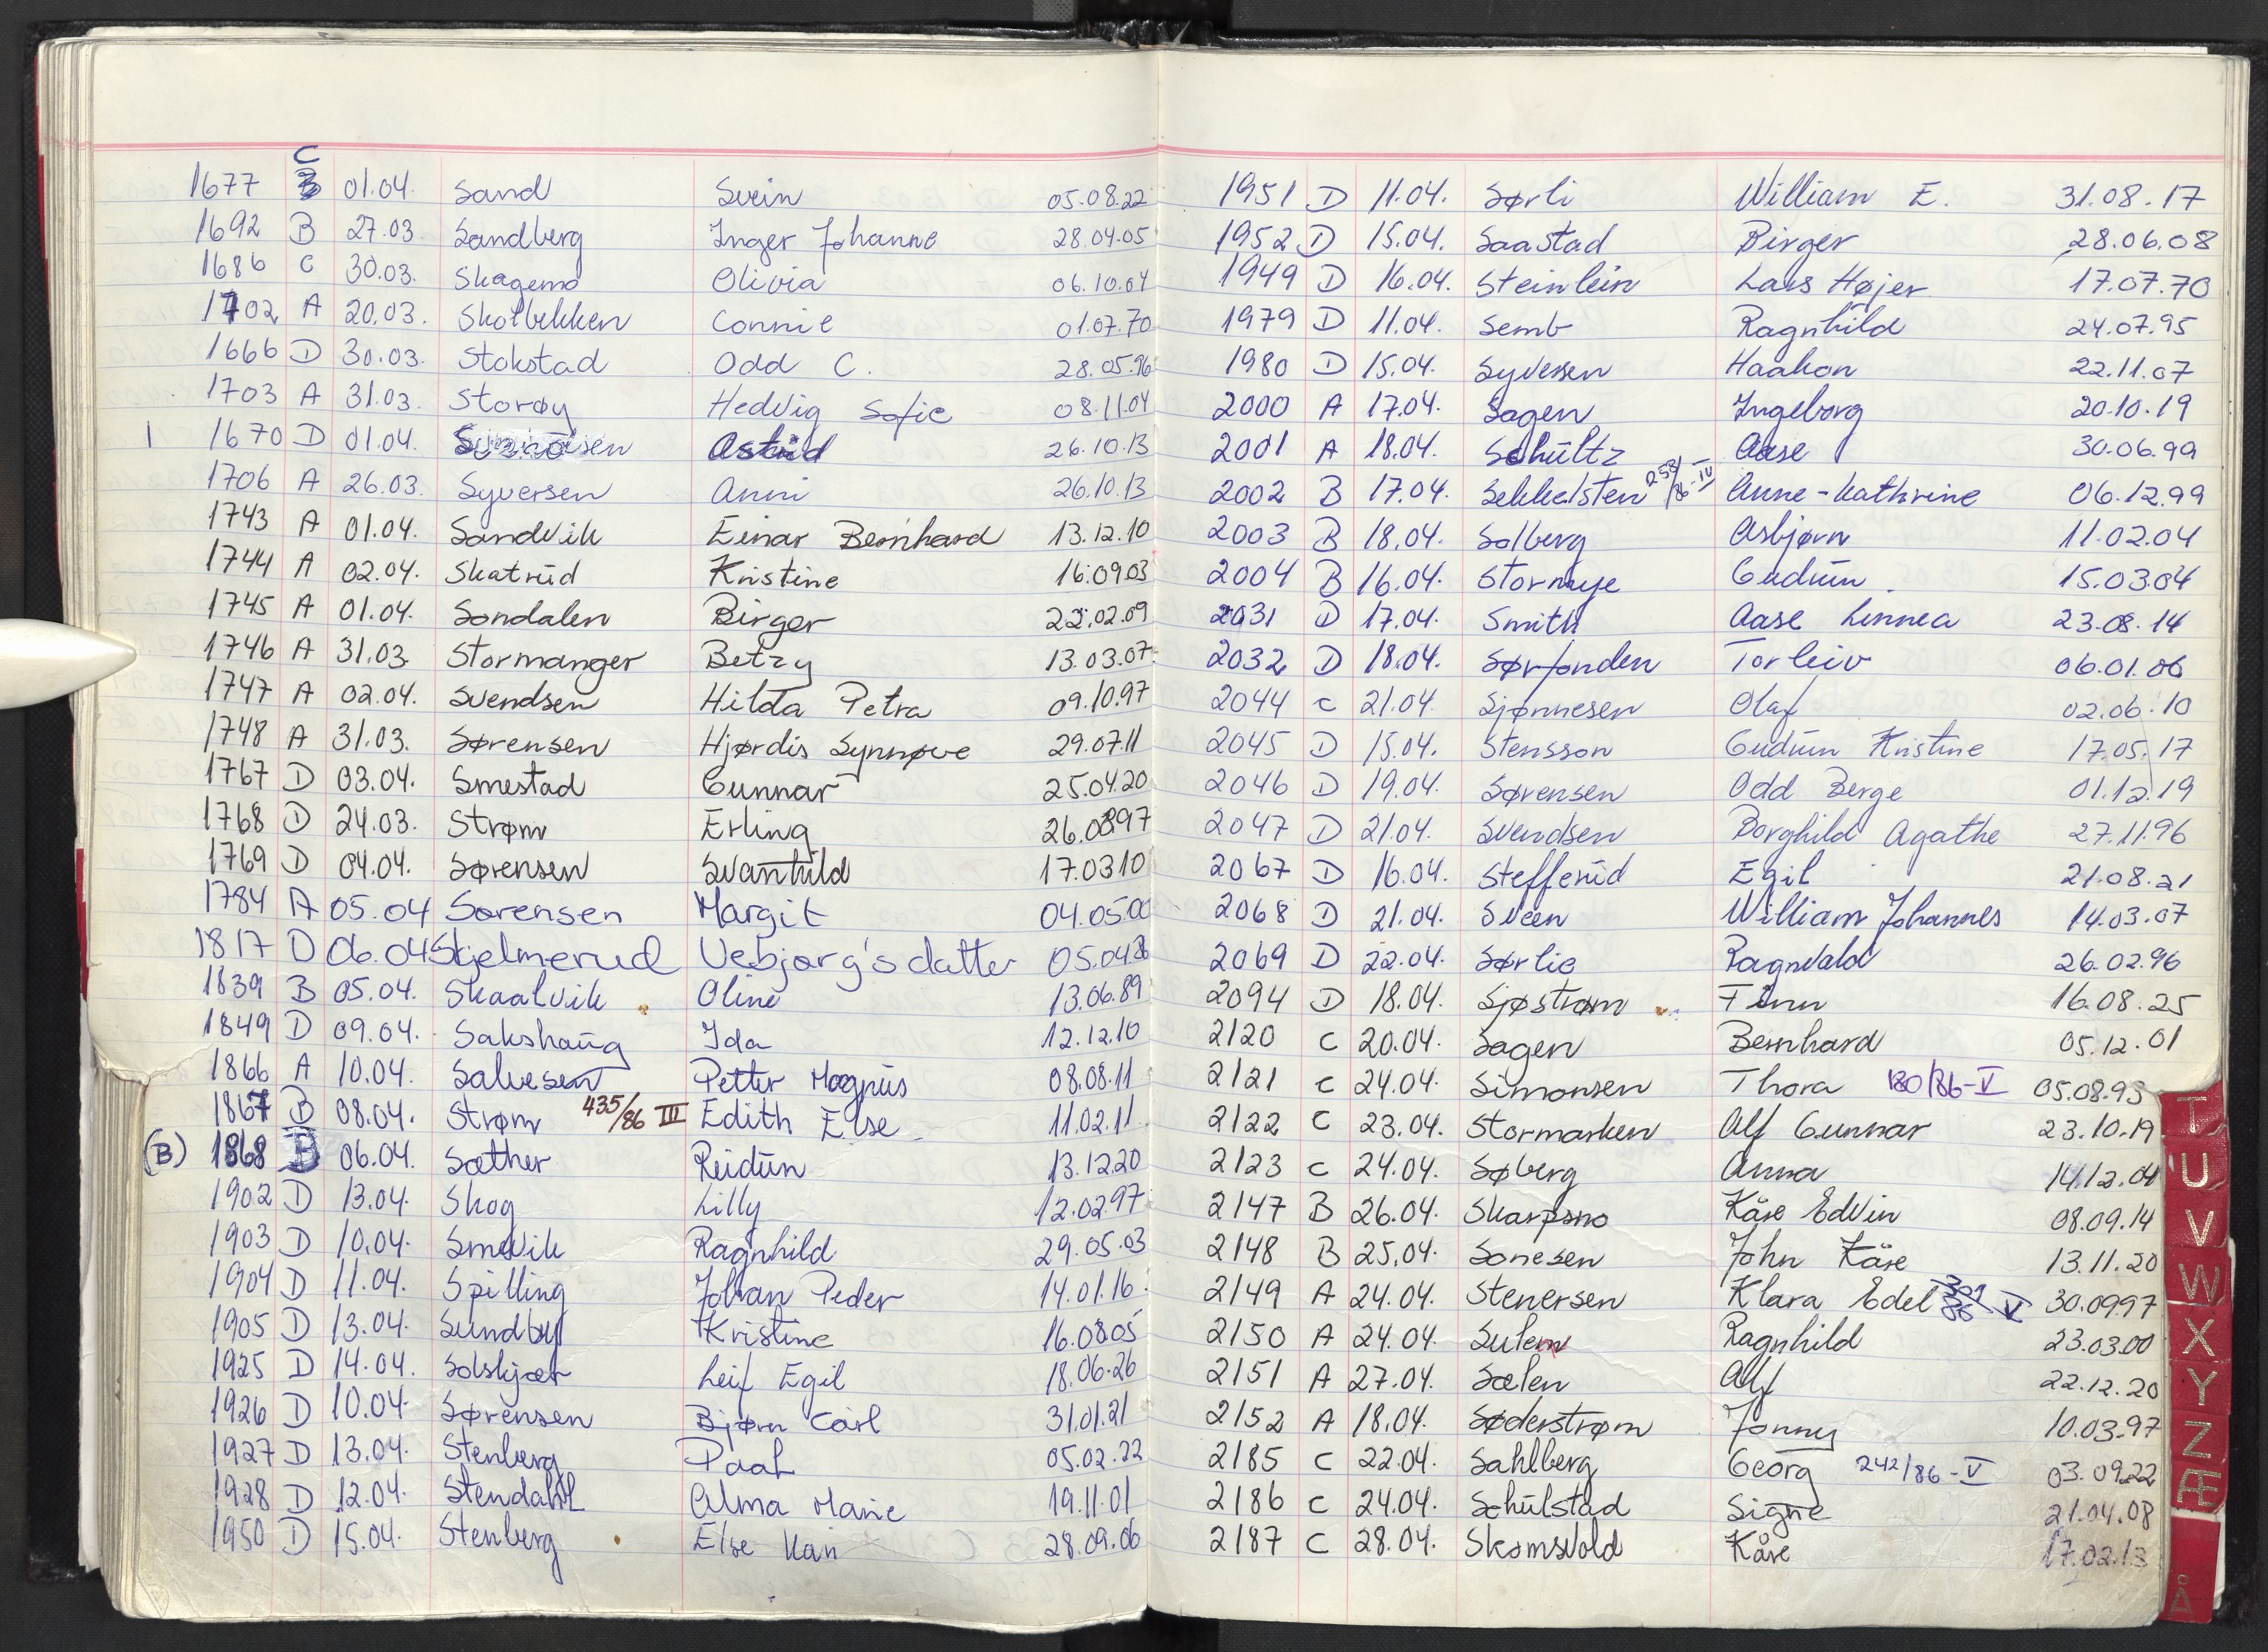 C
1677 B 01.04. Sand Svein 05.08.22
1692 B 27.03. Sandberg Inger Johanne 28.04.05
1686 C 30.03. Skagemo Olivia 06.10.04
1702 A 20.03. Skolbekken Connie 01.07.70
1666 D 30.03. Stokstad Odd C. 28.05.96
1703 A 31.03. Storøy Hedvig Sofie 08.11.04
1 1670 D 01.04. Astrid 26.10.13
1706 A 26.03. Syversen Anni 26.10.13
1743 A 01.04. Sandvik Einar Bernhard 13.12.10
1744 A 02.04. Skatrud Kristine 16.09.03
1745 A 01.04. Sondalen Birger 22.02.09
1746 A 31.03 Stormanger Betzy 13.03.07
1747 A 02.04. Svendsen Hilda Petra 09.10.97
1748 A 31.03. Sørensen Hjørdis Synnøve 29.07.11
1767 D 03.04. Smestad Gunnar 25.04.20
1768 D 24.03. Strøm Erling 26.08.97
1769 D 04.04. Sørensen Svanhild 17.03.10
1784 A 05.04 Sørensen Margit 04.05.00
1817 D 06.04 Skjelmerud Vebjørg's datter 05.04.86
1839 B 05.04. Skaalvik Oline 13.06.89
1849 D 09.04. Sakshaug Ida 12.12.10
1866 A 10.04. Salvesen Petter Magnus 08.08.11
1867 B 08.04. Strøm 435/86 III Edith Else 11.02.11
(B) 1868 B 06.04. Sæther Reidun 13.12.20
1902 D 13.04. Skog Lilly 12.02.97
1903 D 10.04. Smevik Ragnhild 29.05.03
1904 D 11.04. Spilling Johan Peder 14.01.16
1905 D 13.04. Sundby Kristine 16.08.05
1925 D 14.04. Solskjær Leif Egil 18.06.26
1926 D 10.04. Sørensen Bjørn Carl 31.01.21
1927 D 13.04. Stenberg Paal 05.02.22
1928 D 12.04. Stendahl Alma Marie 19.11.01
1950 D 15.04. Stenberg Else Kari 28.09.06
1951 D 11.04. Sørli William E. 31.08.17
1952 D 15.04. Saastad Birger 28.06.08
1949 D 16.04. Steinlein Lars Højer 17.07.70
1979 D 11.04. Semb Ragnhild 24.07.95
1980 D 15.04. Syversen Haakon 22.11.07
2000 A 17.04. Sagen Ingeborg 20.10.19
2001 A 18.04. Schultz Aase 30.06.99
2002 B 17.04. Sekkelsten 253/86-IV Anne-Kathrine 06.12.99
2003 B 18.04. Solberg Asbjørn 11.02.04
2004 B 16.04. Stormye Gudrun 15.03.04
2031 D 17.04. Smith Aase Linnea 23.08.14
2032 D 18.04. Sørfonden Torleiv 06.01.06
2044 C 21.04. Sjønnesen Olaf 02.06.10
2045 D 15.04. Stensson Gudrun Kristine 17.05.17
2046 D 19.04. Sørensen Odd Berge 01.12.19
2047 D 21.04. Svendsen Borghild Agathe 27.11.96
2067 D 16.04. Stefferud Egil 21.08.21
2068 D 21.04. Sveen William Johannes 14.03.07
2069 D 22.04. Sørlie Ragnvald 26.02.96
2094 D 18.04. Sjøstrøm Finn 16.08.25
2120 C 20.04. Sagen Bernhard 05.12.01
2121 C 24.04. Simonsen Thora 180/86-V 05.08.93
2122 C 23.04. Stormarken Alf Gunnar 23.10.19
2123 C 24.04. Søberg Anna 14.12.04
2147 B 26.04. Skarpsno Kåre Edvin 08.09.14
2148 B 25.04. Sonesen John Kåre 13.11.20
2149 A 24.04. Stenersen Klara Edel V 30.09.97
2150 A 24.04. Sulem Ragnhild 23.03.00
2151 A 27.04. Sælen Alf 22.12.20
2152 A 18.04. Søderstrøm Jonny 10.03.97
2185 C 22.04. Sahlberg Georg 242/86-V 03.09.22
2186 C 24.04. Schulstad Signe 21.04.08
2187 C 28.04. Skomsvold Kåre 17.02.13
T
U
V
W
X
Y
Z
Æ
Å